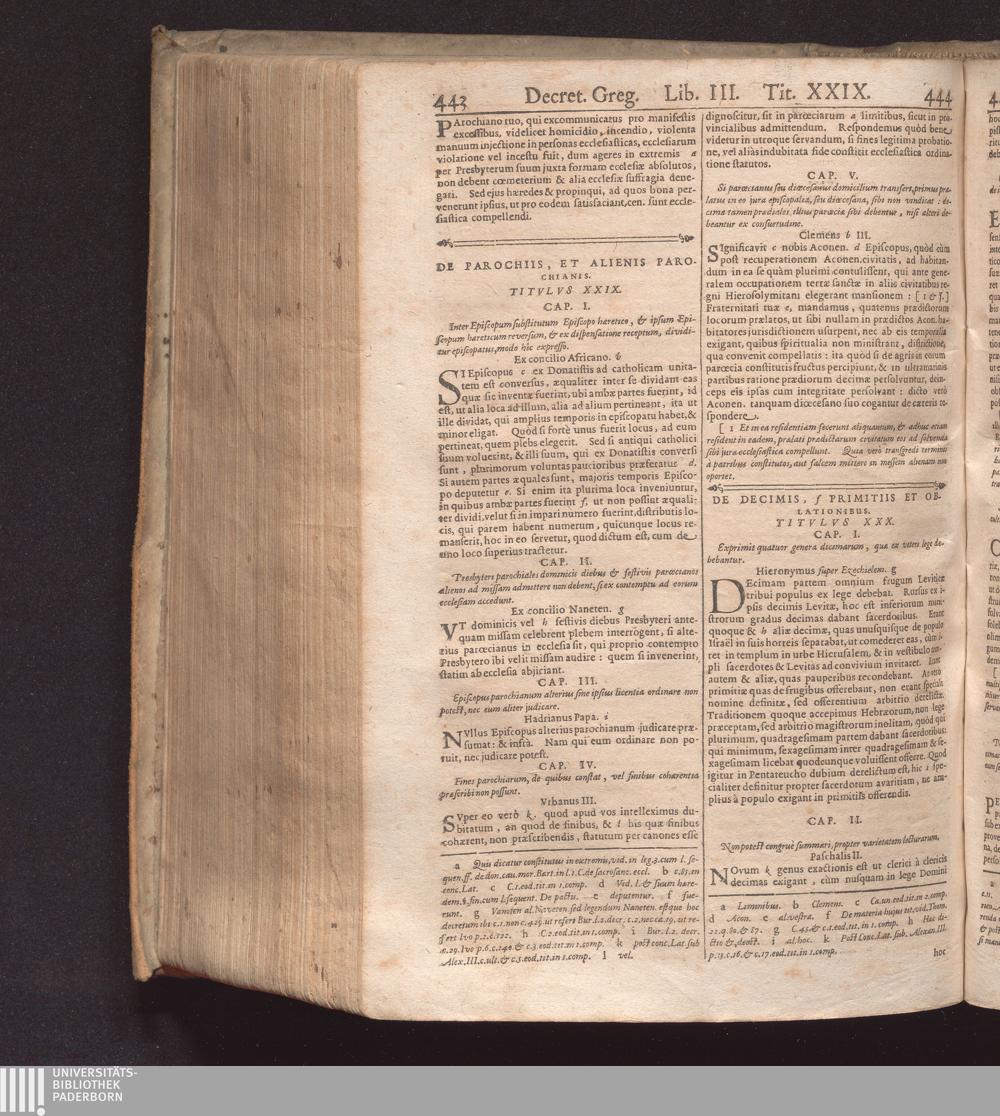 443 Decret. Greg. Lib. III. Tit. XXIX. 444
PArochiano tuo, qui excommunicatus pro manifestis
excessibus, videlicet homicidio, incendio, violenta
manuum injectione in personas ecclesiasticas, ecclesiarum
violatione vel incestu fuit, dum ageres in extremis a
per Presbyterum suum juxta formam ecclesiæ absolutos,
non debent cœmeterium & alia ecclesiæ suffragia dene-
gari. Sed ejus hæredes & propinqui, ad quos bona per-
venerunt ipsius, ut pro eodem satisfaciant, cen. sunt eccle-
siastica compellendi.
DE PAROCHIIS, ET ALIENIS PARO-
CHIANIS.
TITVLVS XXIX.
CAP. I.
Inter Episcopum substitutum Episcopo hæretico, & ipsum Epi-
scopum hæreticum reversum, & ex dispensatione receptum, dividi-
tur episcopatus, modo hic expresso.
Ex concilio Africano. b
SI Episcopus c ex Donatistis ad catholicam unita-
tem est conversus, æqualiter inter se dividant eas
quæ sic inventæ fuerint, ubi ambæ partes fuerint, id
est, ut alia loca ad illum, alia ad alium pertineant, ita ut
ille dividat, qui amplius temporis in episcopatu habet, &
minor eligat. Quòd si fortè unus fuerit locus, ad eum
pertineat, quem plebs elegerit. Sed si antiqui catholici
suum voluerint, & illi suum, qui ex Donatistis conversi
sunt, plurimorum voluntas paucioribus præferatur d.
Si autem partes æquales sunt, majoris temporis Episco-
po deputetur e. Si enim ita plurima loca inveniuntur,
in quibus ambæ partes fuerint f, ut non possint æquali-
ter dividi, velut si in impari numero fuerint, distributis lo-
cis, qui parem habent numerum, quicunque locus re-
manserit, hoc in eo servetur, quod dictum est, cum de
uno loco superius tractetur.
CAP. II.
Presbyteri parochiales dominicis diebus & festivis parœcianos
alienos ad missam admittere non debent, si ex contemptu ad eorum
ecclesiam accedunt.
Ex concilio Naneten. g
VT dominicis vel h festivis diebus Presbyteri ante-
quam missam celebrent plebem interrogent, si alte-
rius parœcianus in ecclesia sit, qui proprio contempto
Presbytero ibi velit missam audire: quem si invenerint,
statim ab ecclesia abjiciant.
CAP. III.
Episcopus parochianum alterius sine ipsius licentia ordinare non
potest, nec eum aliter judicare.
Hadrianus Papa. i
NVllus Episcopus alterius parochianum judicare præ-
sumat: & infrà. Nam qui eum ordinare non po-
tuit, nec judicare potest.
CAP. IV.
Fines parochiarum, de quibus constat, vel finibus cohærentia
præscribi non possunt.
Vrbanus III.
SVper eo verò k, quod apud vos intelleximus du-
bitatum, an quod de finibus, & l his quæ finibus
cohærent, non præscribendis, statutum per canones esse
a Quis dicatur constitutus in extremis, vid. in leg. 3. cum l. se-
quen. ff. de don. cau. mor. Bart. in l. 1. C. de sacrosanc. eccl. b c. 85. in
conc. Lat. c C. 1. eod. tit. in 1. comp. d Vid. l. & suum hære-
dem. §. fin. cum l. sequent. De pactis. e deputentur. f fue-
runt. g Vanoten al. Naveren. sed legendum Naneten. estque hoc
decretum ibi c. 1. non c. 4. 29. ut refert Bur. l. 2. decr. c. 2. nec ca. 19. ut re-
fert Ivo p. 2. c. 122. h C. 2. eod. tit. in 1. comp. i Bur. l. 2. decr.
c. 29. Ivo p. 6. c. 240. & c. 3. eod. tit. in 1. comp. k post conc. Lat sub
Alex. III. c. ult. & c. 5. eod. tit. in 1. comp. l vel.
dignoscitur, sit in parœciarum a limitibus, sicut in pro-
vincialibus admittendum. Respondemus quòd bene
videtur in utroque servandum, si fines legitima probatio-
ne, vel aliàs indubitata fide constitit ecclesiastica ordina-
tione statutos.
CAP. V.
Si parœcianus seu diœcesanus domicilium transfert, primus præ-
latus in eo jura episcopalia, seu diœcesana, sibi non vindicat: de-
cimæ tamen prædiales, illius parœciæ sibi debentur, nisi alteri de-
beantur ex consuetudine.
Clemens b III.
SIgnificavit c nobis Aconen. d Episcopus, quòd cùm
post recuperationem Aconen. civitatis, ad habitan-
dum in ea se quàm plurimi contulissent, qui ante gene-
ralem occupationem terræ sanctæ in aliis civitatibus re-
gni Hierosolymitani elegerant mansionem: [1 & f.]
Fraternitati tuæ e, mandamus, quatenus prædictorum
locorum prælatos, ut sibi nullam in prædictos Acon. ha-
bitatores jurisdictionem usurpent, nec ab eis temporalia
exigant, quibus spiritualia non ministrant, districtione,
qua convenit compellatis: ita quòd si de agris in eorum
parœcia constitutis fructus percipiunt, & in ultramarinis
partibus ratione prædiorum decimæ persolvuntur, dein-
ceps eis ipsas cum integritate persolvant: dicto verò
Aconen. tanquam diœcesano suo cogantur de cæteris re-
spondere.
[1 Et in ea residentiam fecerunt aliquantum, & adhuc etiam
resident in eadem, prælati prædictarum civitatum eos ad solvenda
sibi jura ecclesiastica compellunt. Quia verò transgredi terminos
à patribus constitutos, aut falcem mittere in messem alienam non
oportet.
DE DECIMIS, f PRIMITIIS ET OB-
LATIONIBUS.
TITVLVS XXX.
CAP. I.
Exprimit quatuor genera decimarum, quæ ex veteri lege de-
bebantur.
Hieronymus super Ezechielem. g
DEcimam partem omnium frugum Leviticæ
tribui populus ex lege debebat. Rursus ex i-
psis decimis Levitæ, hoc est inferiorum mini-
strorum gradus decimas dabant sacerdotibus. Erant
quoque & h aliæ decimæ, quas unusquisque de populo
Israël in suis horreis separabat, ut comederet eas, cùm i-
ret in templum in urbe Hierusalem, & in vestibulo tem-
pli sacerdotes & Levitas ad convivium invitaret. Erant
autem & aliæ, quas pauperibus recondebant. At verò
primitiæ quas de frugibus offerebant, non erant speciali
nomine definitæ, sed offerentium arbitrio derelictæ.
Traditionem quoque accepimus Hebræorum, non lege
præceptam, sed arbitrio magistrorum inolitam, quòd qui
plurimum, quadragesimam partem dabant sacerdotibus:
qui minimum, sexagesimam inter quadragesimam & se-
xagesimam licebat quodcunque voluissent offerre. Quod
igitur in Pentateucho dubium derelictum est, hic i spe-
cialiter definitur propter sacerdotum avaritiam, ne am-
plius à populo exigant in primitiis offerendis.
CAP. II.
Non potest congruè summari, propter varietatem lecturarum.
Paschalis II.
NOvum k genus exactionis est ut clerici à clericis
decimas exigant, cùm nusquam in lege Domini
a Limitibus. b Clemens. c Ca. un. eod. tit. in 2. comp.
d Acon. e al. vestra. f De materia hujus tit. vid. Thom.
22. q. 80. & 87. g C. 45. & c. 1. eod. tit. in 1. comp. h Hac di-
cto &, deest. i al. hoc. k Post Conc. Lat. sub Alexan. III.
p. 13. c. 16. & c. 17. eod. tit. in 1. comp.
hoc
UNIVERSITÄTS-
BIBLIOTHEK
PADERBORN